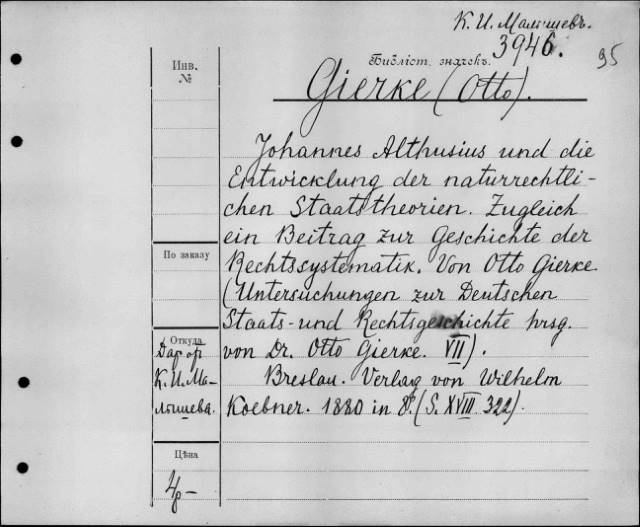 К. И. Малышевъ.
3946.
95
Библіот. значекъ.
Gierke (Otto).
Инв.
№
Johannes Althusius und die
Entwicklung der naturrechtli-
chen Staatstheorien. Zugleich
ein Beitrag zur Geschichte der
Rechtssystematik. Von Otto Gierke
(Untersuchungen zur Deutschen
Staats- und Rechtsgeschichte hrsg.
von Dr. Otto Gierke. VII).
Breslau. Verlag von Wilhelm
Koebner. 1880 in 8º. (S. XVIII 322).
По заказу
Откуда
Дар от
К. И. Ма-
лышева.
Цѣна
4р-